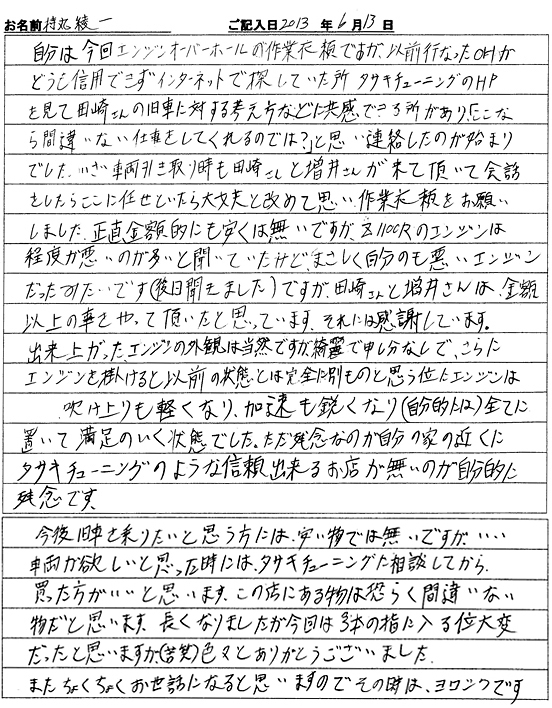 お名前 持丸綾一 ご記入日2013 年 6 月 13 日
自分は今回エンジンオーバーホールの作業依頼ですが、以前行なったOHが
どうも信用できずインターネットで探していた所 タサキチューニングのHP
を見て田崎さんの旧車に対する考え方などに共感できる所があり、「ここな
ら間違いない仕事をしてくれるのでは?」と思い連絡したのが始まり
でした。いざ車両引き取り時も田崎さんと増井さんが来て頂いて会話
をしたらここに任せていたら大丈夫と改めて思い、作業依頼をお願い
しました。正直金額的にも安くは無いですが、Z1100Rのエンジンは
程度が悪いのが多いと聞いていたけどまさしく自分のも悪いエンジン
だったみたいです(後日聞きました)ですが、田崎さんと増井さんは、金額
以上の事をやって頂いたと思っています。それには感謝しています。
出来上がったエンジンの外観は当然ですが綺麗で申し分なしで、さらに
エンジンを掛けると以前の状態とは完全に別ものと思う位にエンジンは
吹け上りも軽くなり、加速も鋭くなり(自分的には)全てに
置いて満足のいく状態でした。ただ残念なのが自分の家の近くに
タサキチューニングのような信頼出来るお店が無いのが自分的に
残念です。
今後旧車を乗りたいと思う方には、安い物では無いですが、いい
車両が欲しいと思った時には、タサキチューニングに相談してから、
買った方がいいと思います。この店にある物は恐らく間違いない
物だと思います。長くなりましたが今回は3本の指に入る位大変
だったと思いますが、(苦笑)色々とありがとうございました。
またちょくちょくお世話になると思いますのでその時は、ヨロシクです